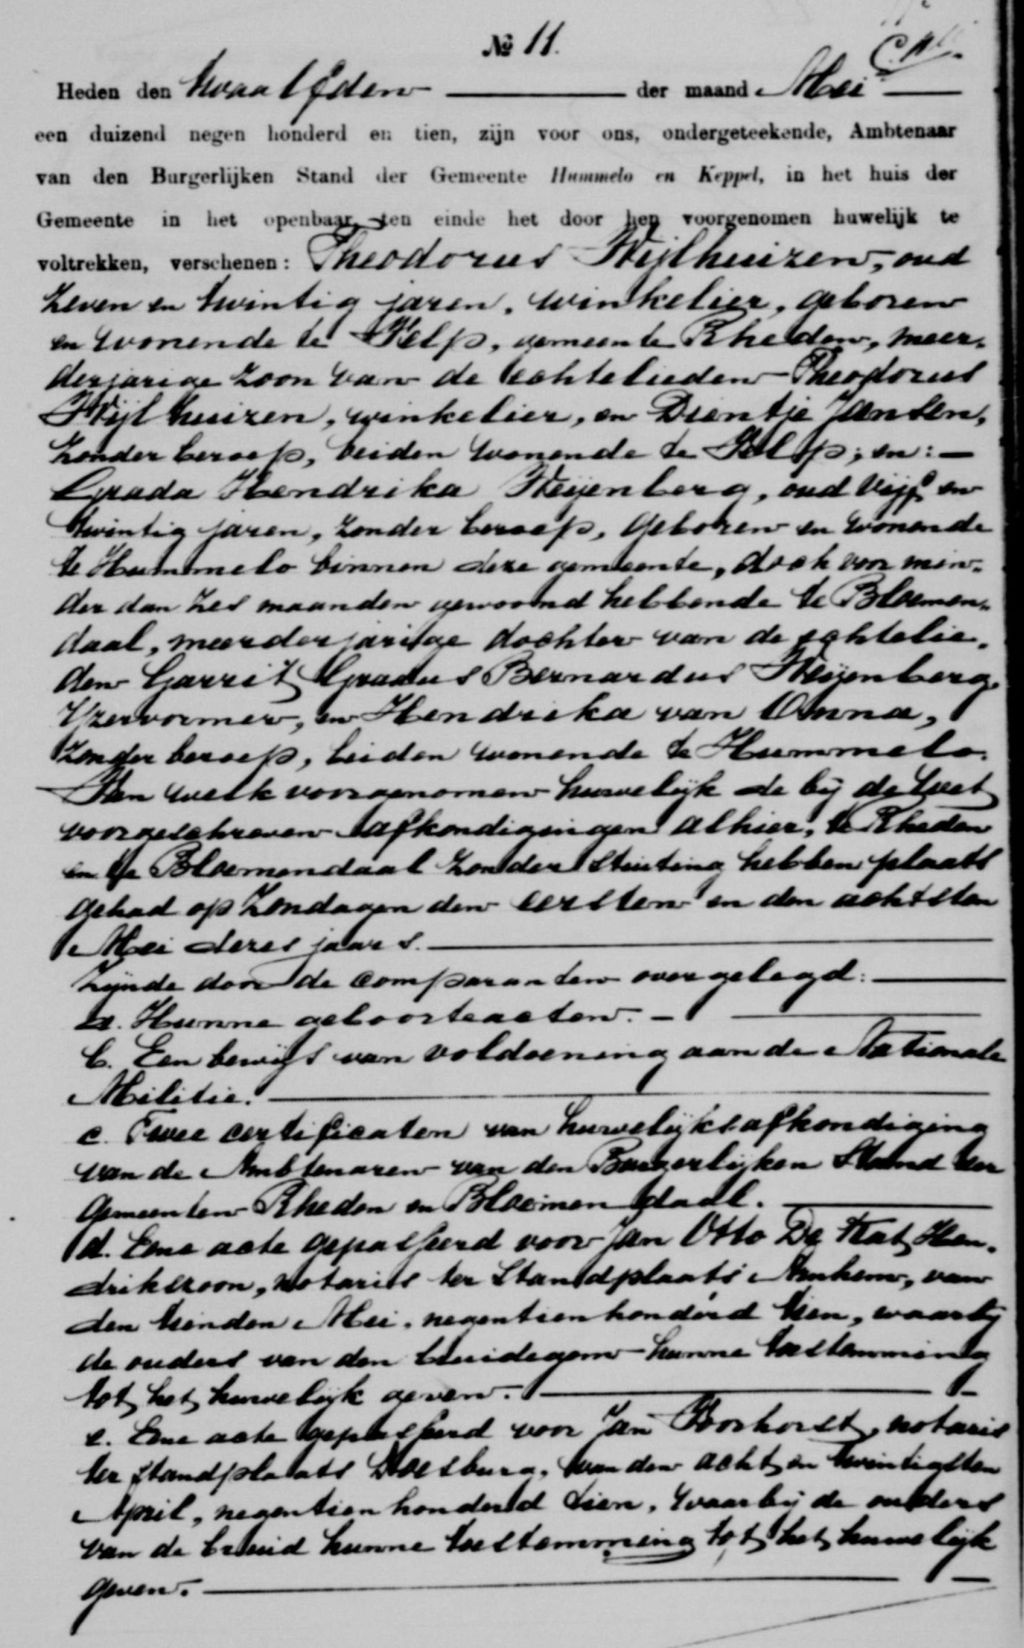 № 11.
Heden den twaalfden der maand Mei
een duizend negen honderd en tien, zijn voor ons, ondergeteekende, Ambtenaar
van den Burgerlijken Stand der Gemeente Hummelo en Keppel, in het huis der
Gemeente in het openbaar, ten einde het door hen voorgenomen huwelijk te
voltrekken, verschenen: Theodorus Wijlhuizen, oud
zeven en twintig jaren, winkelier, geboren
en wonende te Velp, gemeente Rheden, meer-
derjarige zoon van de echtelieden Theodorus
Wijlhuizen, winkelier, en Dientje Jansen,
zonder beroep, beiden wonende te Velp; en:
Grada Hendrika Weijenberg, oud vijf en
twintig jaren, zonder beroep, geboren en wonende
te Hummelo binnen deze gemeente, doch voor min-
der dan zes maanden gewoond hebbende te Bloemen-
daal, meerderjarige dochter van de echtelie-
den Garrit Gradus Bernardus Weijenberg,
IJzervormer, en Hendrika van Onna,
zonder beroep, beiden wonende te Hummelo.
Van welk voorgenomen huwelijk de bij de Wet
voorgeschreven afkondigingen alhier, te Rheden
en te Bloemendaal zonder stuiting hebben plaats
gehad op Zondagen den eersten en den achtsten
Mei dezes jaars.
Zijnde door de comparanten overgelegd:
a. Hunne geboorteacten.
b. Een bewijs van voldoening aan de Nationale
Militie.
c. Twee certificaten van huwelijksafkondiging
van de Ambtenaren van den Burgerlijken Stand der
gemeenten Rheden en Bloemendaal.
d. Eene acte gepasseerd voor Jan Otto De Kat, Hen-
drikszoon, notaris ter standplaats Arnhem, van
den tienden Mei, negentienhonderd tien, waarbij
de ouders van den bruidegom hunne toestemming
tot het huwelijk geven.
e. Eene acte gepasseerd voor Jan, notaris
ter standplaats Doesburg, van den acht en twintigsten
April, negentienhonderd tien, waarbij de ouders
van de bruid hunne toestemming tot het huwelijk
geven.